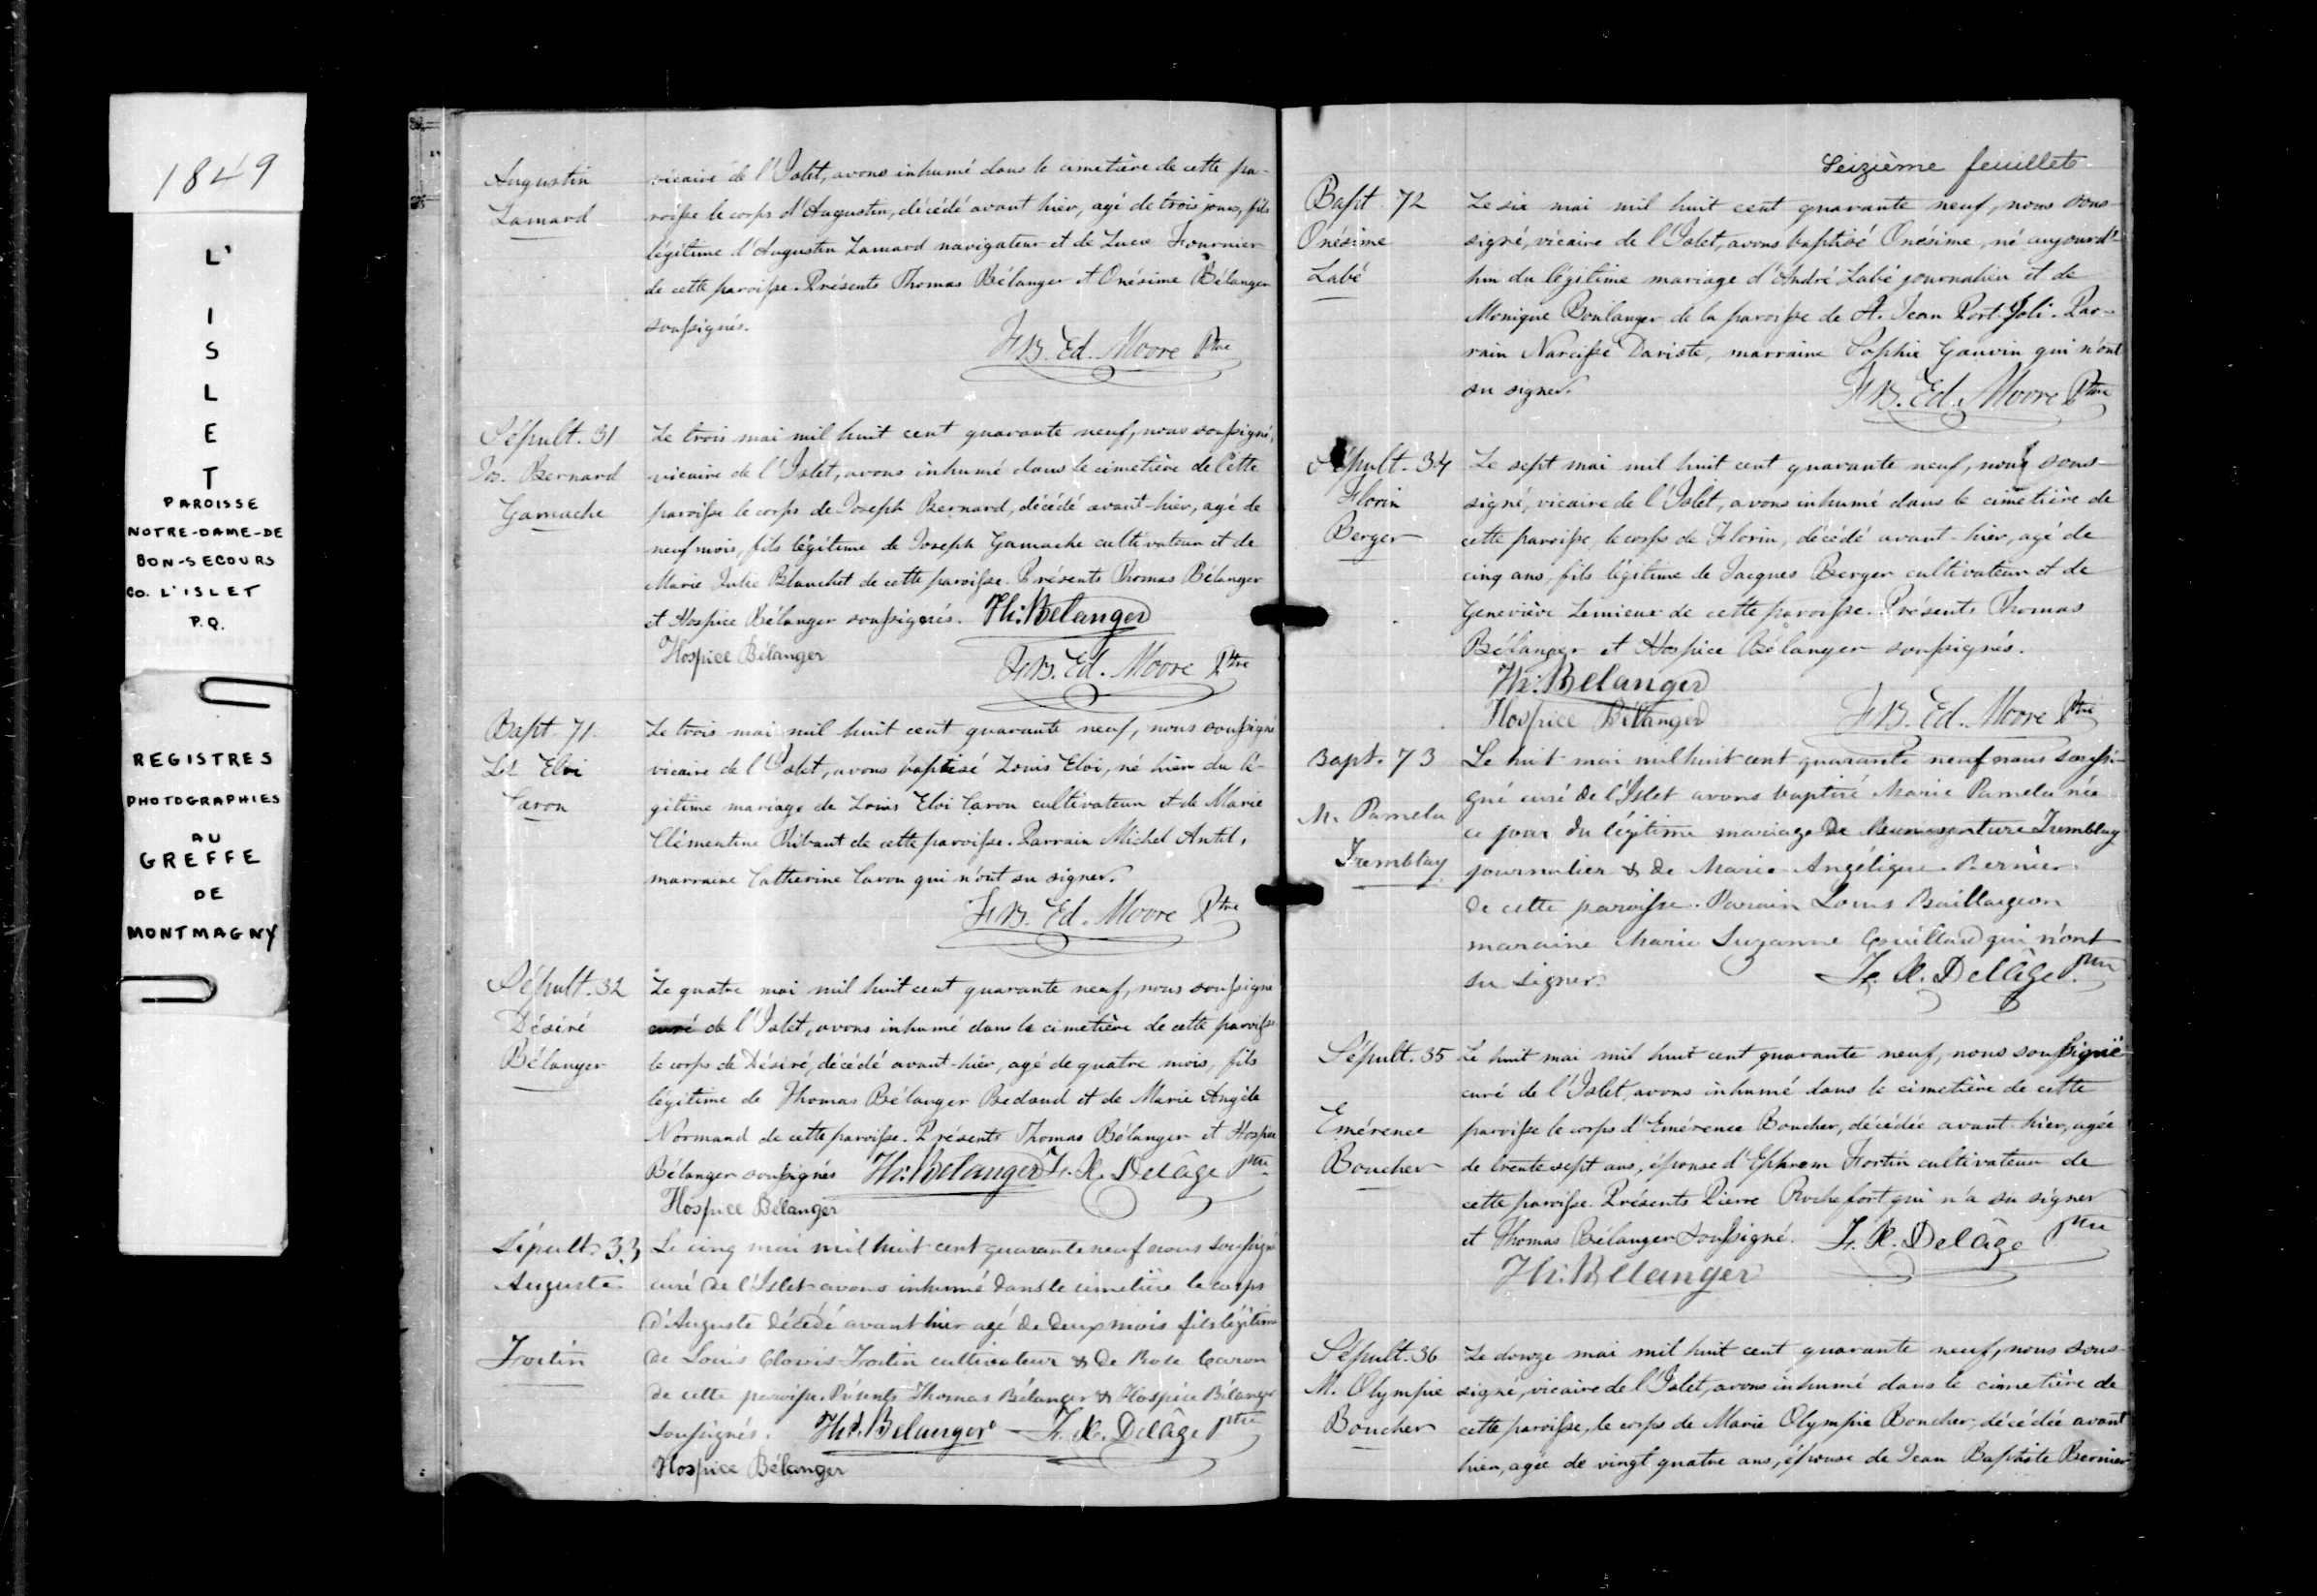 1849
L'
I
S
L
E
T
PAROISSE
NOTRE-DAME-DE
BON-SECOURS
CO. L'ISLET
P.Q.
REGISTRES
PHOTOGRAPHIES
AU
GREFFE
DE
MONTMAGNY
Augustin
Lamard
vicaire de l'Islet, avons inhumé dans le cimetière de cette pa-
roisse le corps d'Augustin, décédé avant hier, agé de trois jours, fils
légitime d'Augustin Lamard navigateur et de Luce Fournier
de cette paroisse. Présents Thomas Bélanger et Onésime Bélanger
soussignés.
F.B. Ed. Moore Ptre
Sépult. 31
Jos. Bernard
Gamache
Le trois mai mil huit cent quarante neuf, nous soussigné,
vicaire de l'Islet, avons inhumé dans le cimetière de cette
paroisse le corps de Joseph Bernard, décédé avant-hier, agé de
neuf mois, fils légitime de Joseph Gamache cultivateur et de
Marie Julie Blanchet de cette paroisse. Présents Thomas Bélanger
et Hospice Bélanger soussignés. Th: Belanger
Hospice Bélanger
F.B. Ed. Moore Ptre
Bapt. 71.
Ls Eloi
Caron
Le trois mai mil huit cent quarante neuf, nous soussigné
vicaire de l'Islet, avons baptisé Louis Eloi, né hier du lé-
gitime mariage de Louis Eloi Caron cultivateur et de Marie
Clémentine Thibaut de cette paroisse. Parrain Michel Antil,
marraine Catherine Caron qui n'ont su signer.
F.B. Ed. Moore Ptre
Sépult. 32
Désiré
Bélanger
Le quatre mai mil huit cent quarante neuf, nous soussigné
curé de l'Islet, avons inhumé dans le cimetière de cette paroisse
le corps de Désiré, décédé avant-hier, agé de quatre mois, fils
légitime de Thomas Bélanger Bedaud et de Marie Angèle
Normand de cette paroisse. Présents Thomas Bélanger et Hospice
Bélanger soussignés Th: Belanger F. X. Delâge Ptre
Hospice Bélanger
Sépult. 33
Auguste
Fortin
Le cinq mai mil huit cent quarante neuf nous soussigné
curé de l'Islet avons inhumé dans le cimetière le corps
d'Auguste décédé avant hier agé de deux mois fils légitime
de Louis Clovis Fortin cultivateur & de Rose Caron
de cette paroisse. Présents Thomas Bélanger & Hospice Bélanger
soussignés. Th: Belanger F. X. Delâge Ptre
Hospice Bélanger
Seizième feuillet
Bapt. 72
Onésime
Labé
Le six mai mil huit cent quarante neuf, nous sous-
signé, vicaire de l'Islet, avons baptisé Onésime, né aujourd'-
hui du légitime mariage d'André Labé journalier et de
Monique Boulanger de la paroisse de St. Jean Port Joli. Par-
rain Narcisse Daviste, marraine Sophie Gauvin qui n'ont
su signer.
F.B. Ed. Moore Ptre
Sépult. 34
Florin
Berger
Le sept mai mil huit cent quarante neuf, nous sous-
signé, vicaire de l'Islet, avons inhumé dans le cimetière de
cette paroisse, le corps de Florin, décédé avant-hier, agé de
cinq ans, fils légitime de Jacques Berger cultivateur et de
Geneviève Lemieux de cette paroisse. Présents Thomas
Bélanger et Hospice Bélanger soussignés.
Th: Belanger
Hospice Bélanger
F.B. Ed. Moore Ptre
Bapt. 73
M. Pamela
Tremblay
Le huit mai mil huit cent quarante neuf nous soussi-
gné curé de l'Islet avons baptisé Marie Pamela née
ce jour du légitime mariage de Tremblay
journalier & de Marie Angélique Bernier
de cette paroisse. Parain Louis Baillargeon
maraine Marie Suzanne Couillard qui n'ont
su signer.
F. X. Delâge Ptre
Sépult. 35
Emérence
Boucher
Le huit mai mil huit cent quarante neuf, nous soussigné
curé de l'Islet, avons inhumé dans le cimetière de cette
paroisse le corps d'Emérence Boucher, décédée avant hier, agée
de trente sept ans, épouse d'Ephrem Fortin cultivateur de
cette paroisse. Présents Pierre Rochefort qui n'a su signer
et Thomas Bélanger soussigné. F. X. Delâge Ptre
Th: Belanger
Sépult. 36
M. Olympie
Boucher
Le douze mai mil huit cent quarante neuf, nous sous-
signé, vicaire de l'Islet, avons inhumé dans le cimetière de
cette paroisse, le corps de Marie Olympie Boucher, décédée avant
hier, agée de vingt quatre ans, épouse de Jean Baptiste Bernier